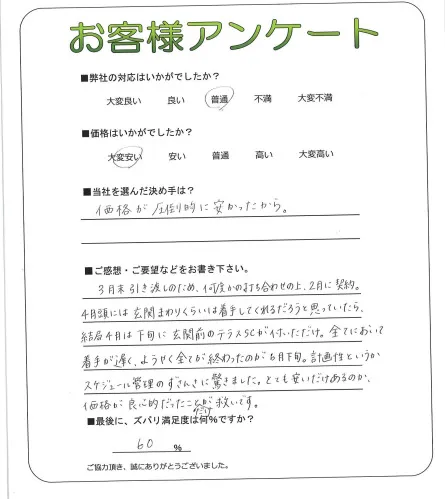 お客様アンケート
■弊社の対応はいかがでしたか？
大変良い 良い 普通 不満 大変不満
■価格はいかがでしたか？
大変安い 安い 普通 高い 大変高い
■当社を選んだ決め手は？
価格が圧倒的に安かったから。
■ご感想・ご要望などをお書き下さい。
3月末引き渡しのため、何度かの打ち合わせの上、2月に契約。
4月頭には玄関まわりくらいは着手してくれるだろうと思っていたら、
結局4月は下旬に玄関前のテラスSCが付いただけ。全てにおいて
着手が遅く、ようやく全てが終わったのが6月下旬。計画性というか
スケジュール管理のずさんさに驚きました。とても安いだけあるのか、
価格が良心的だったことだけが救いです。
■最後に、ズバリ満足度は何％ですか？
60 %
ご協力頂き、誠にありがとうございました。